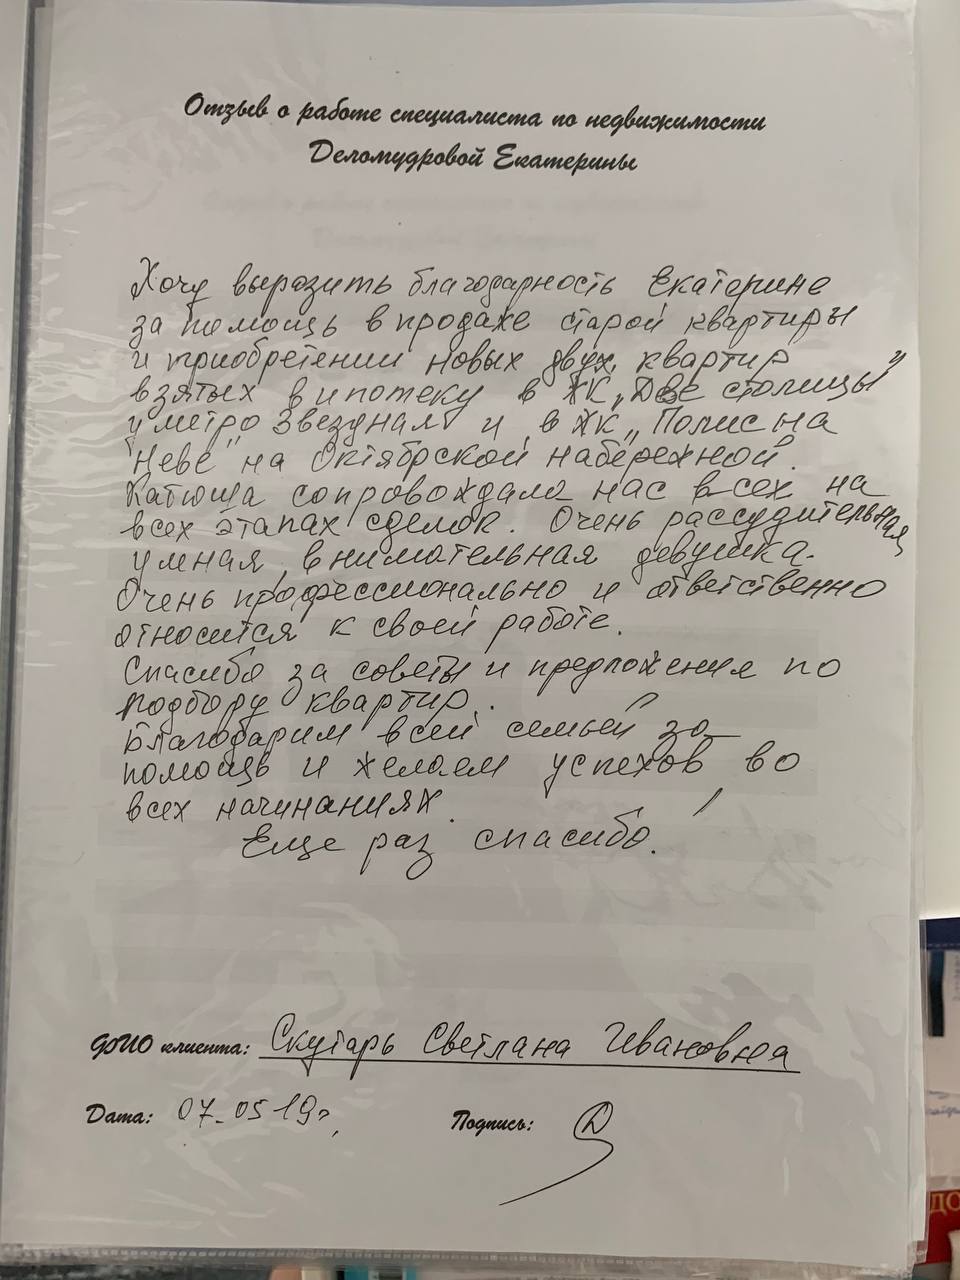 Отзыв о работе специалиста по недвижимости
Деломудровой Екатерины
Хочу выразить благодарность Екатерине
за помощь в продаже старой квартиры
и приобретении новых двух квартир
взятых в ипотеку в ЖК „Две столицы"
у метро Звездная и в ЖК „Полис на
Неве" на Октябрской набережной.
Катюша сопровождала нас всех на
всех этапах сделок. Очень рассудительная
умная, внимательная девушка.
Очень профессионально и ответственно
относится к своей работе.
Спасибо за советы и предложения по
подбору квартир.
Благодарим всей семьей за
помощь и желаем успехов во
всех начинаниях.
Еще раз спасибо!
ФИО клиента: Скутарь Светлана Ивановна
Дата: 07.05 19г. Подпись:
ДО